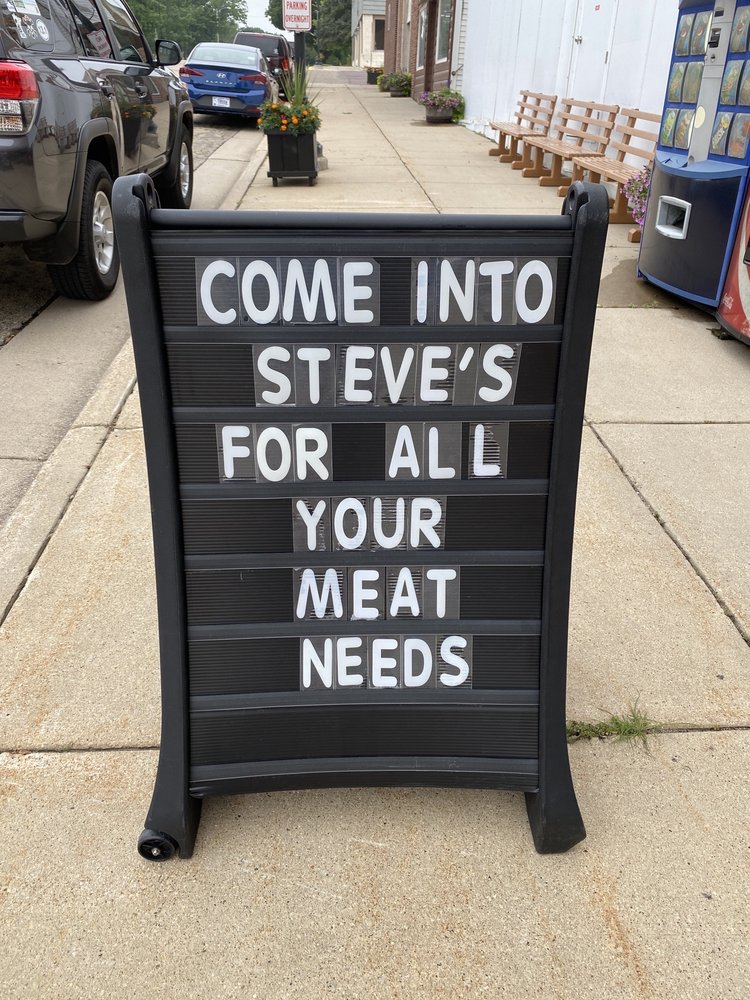 PARKING
OVERNIGHT
COME INTO
STEVE'S
FOR ALL
YOUR
MEAT
NEEDS